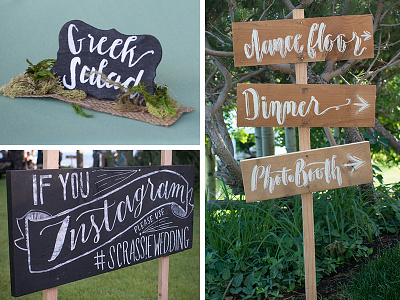 Greek
Salad
IF YOU
Instagram
PLEASE USE
#SCRASSIEWEDDING
dance floor
Dinner
PhotoBooth